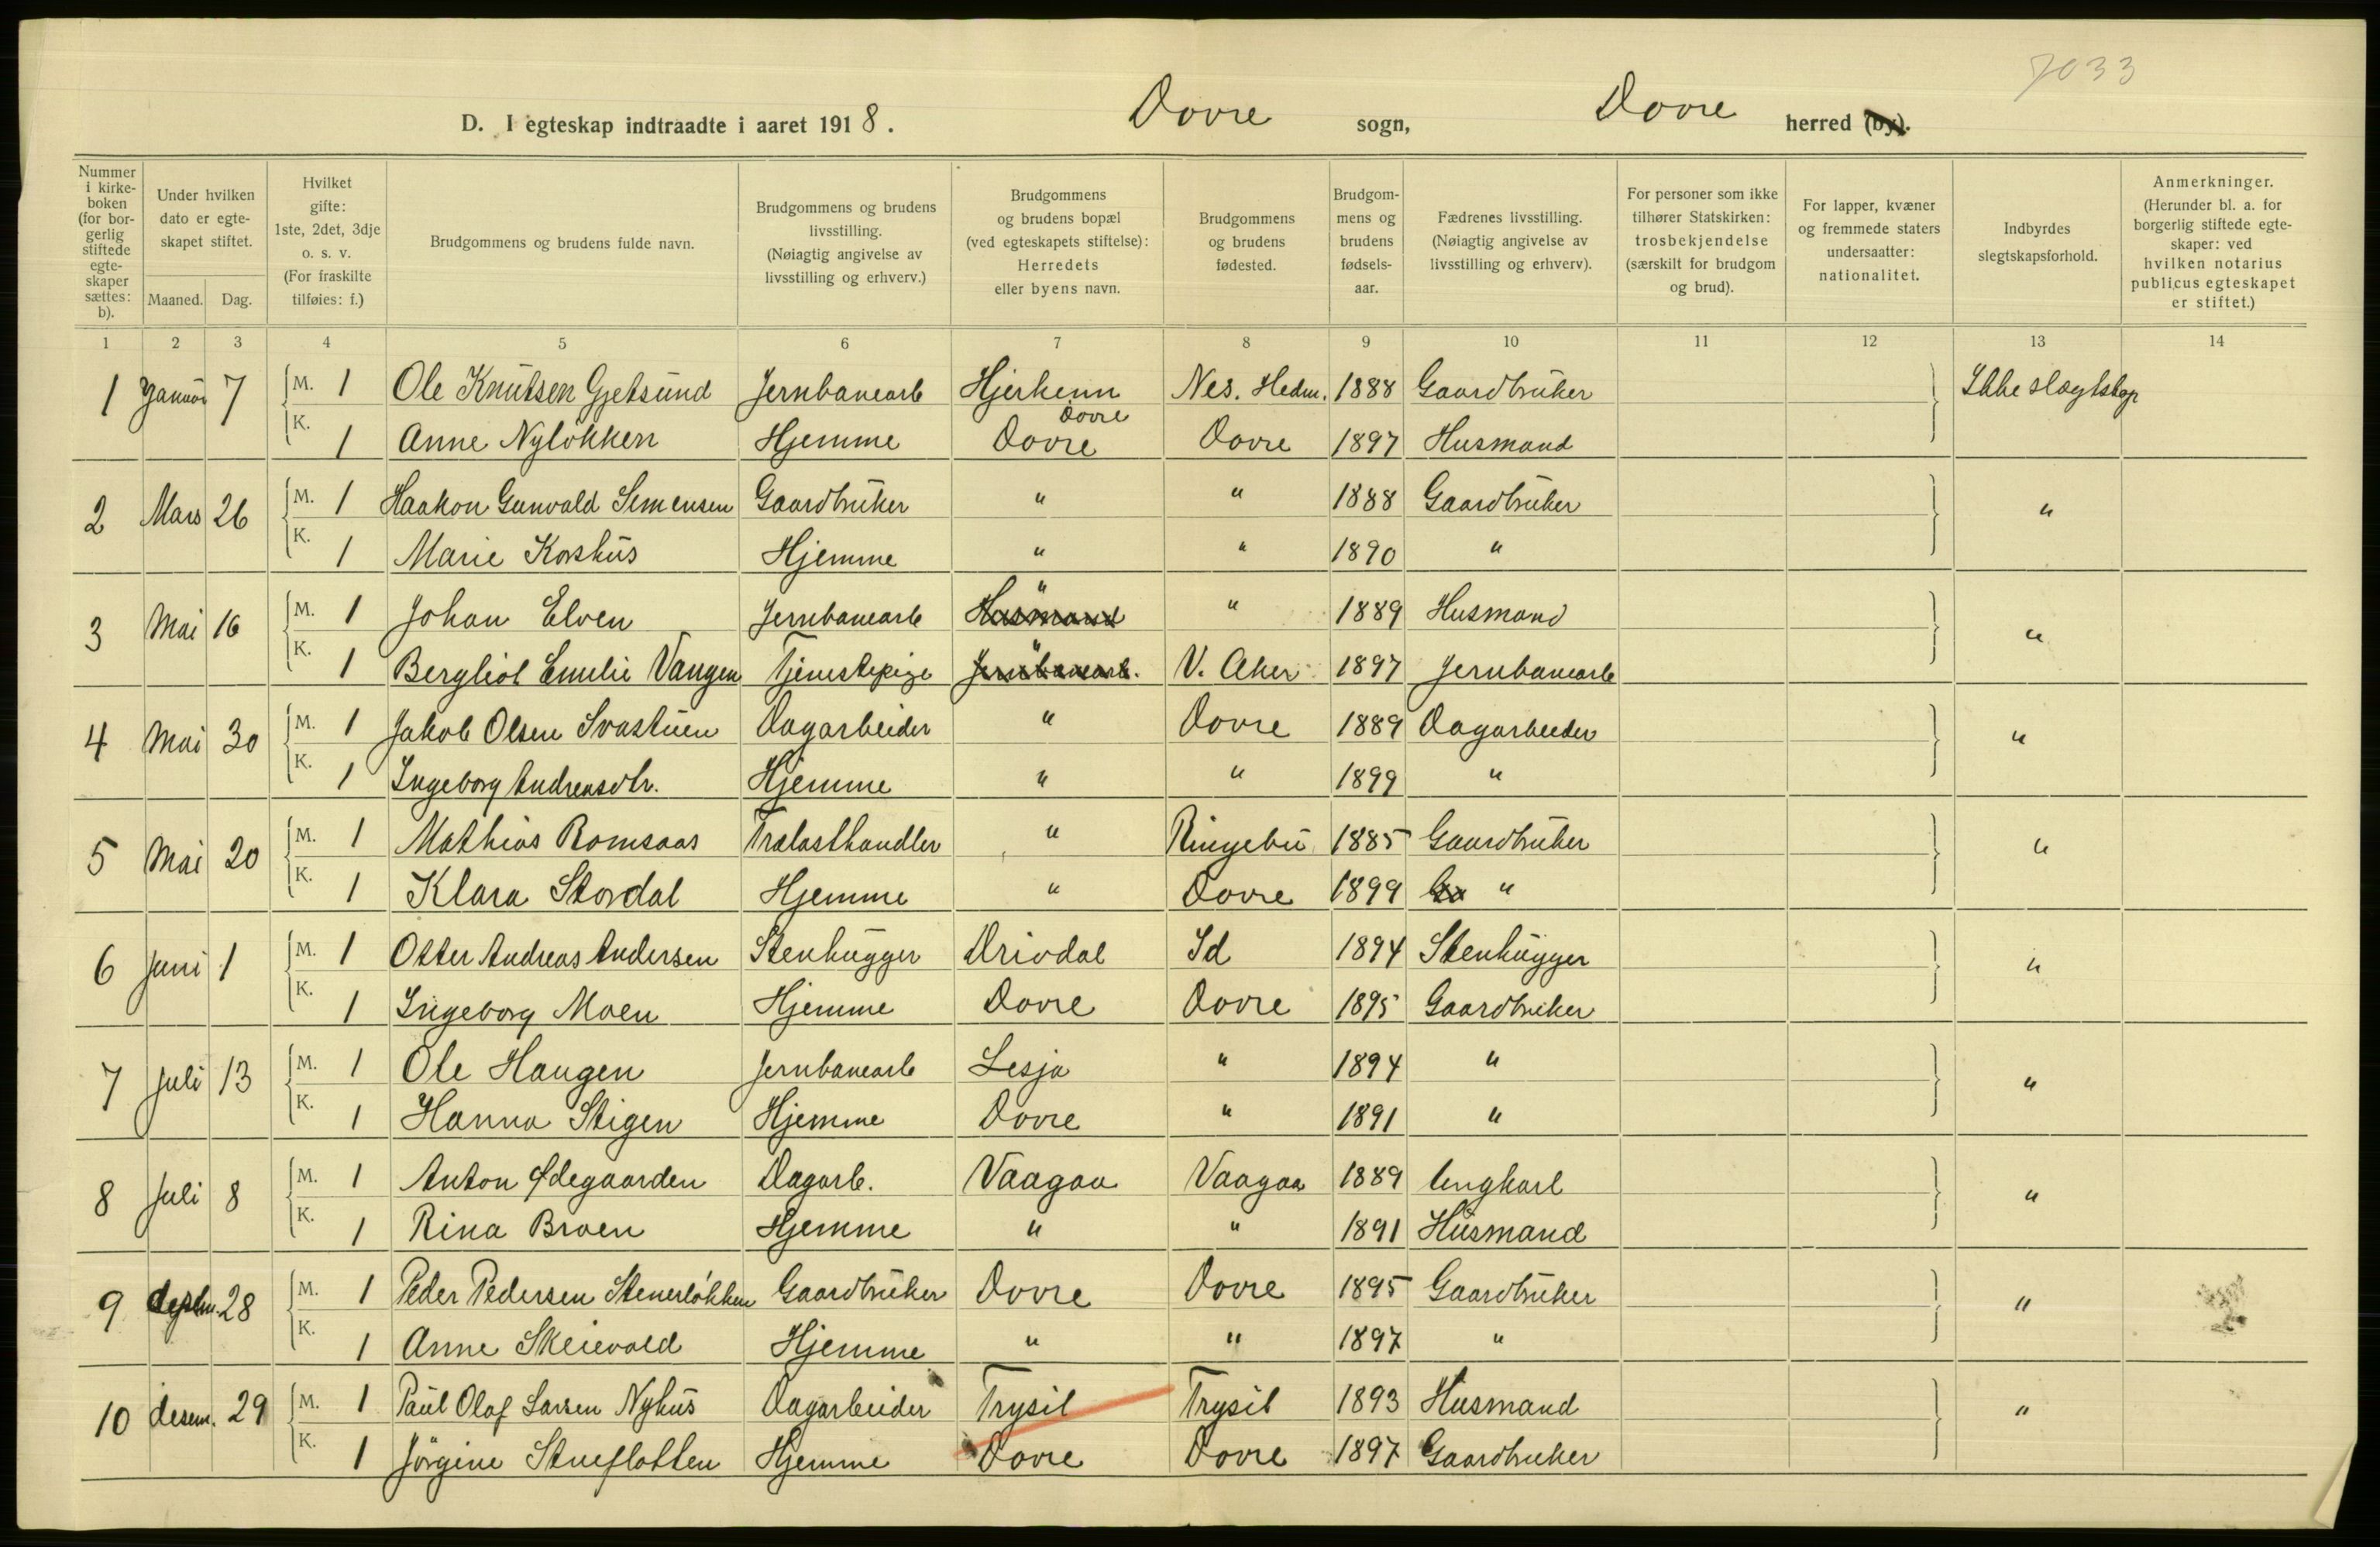 7033
D. I egteskap indtraadte i aaret 1918. Dovre sogn, Dovre herred (by).
Nummer i kirke-boken (for bor-gerlig stiftede egte-skaper sættes: b). | Under hvilken dato er egte-skapet stiftet. Maaned. | Dag. | Hvilket gifte: 1ste, 2det, 3dje o. s. v. (For fraskilte tilføies: f.) | Brudgommens og brudens fulde navn. | Brudgommens og brudens livsstilling. (Nøiagtig angivelse av livsstilling og erhverv.) | Brudgommens og brudens bopæl (ved egteskapets stiftelse): Herredets eller byens navn. | Brudgommens og brudens fødested. | Brudgom-mens og brudens fødsels-aar. | Fædrenes livsstilling. (Nøiagtig angivelse av livsstilling og erhverv). | For personer som ikke tilhører Statskirken: trosbekjendelse (særskilt for brudgom og brud). | For lapper, kvæner og fremmede staters undersaatter: nationalitet. | Indbyrdes slegtskapsforhold. | Anmerkninger. (Herunder bl. a. for borgerlig stiftede egte-skaper: ved hvilken notarius publicus egteskapet er stiftet.)
1 2 3 4 5 6 7 8 9 10 11 12 13 14
1 Januar 7 M. 1 Ole Knutsen Gjetsund Jernbanearb Hjerkinn Dovre Nes. Hedm. 1888 Gaardbruker Ikke slægtskap
K. 1 Anne Nyløkken Hjemme Dovre Dovre 1897 Husmand
2 Mars 26 M. 1 Haakon Gunvald Simensen Gaardbruker " " 1888 Gaardbruker "
K. 1 Marie Korshus Hjemme " " 1890 "
3 Mai 16 M. 1 Johan Elven Jernbanearb Husmand " " 1889 Husmand "
K. 1 Bergliot Emilie Vangen Tjenestepige Jernbanearb. " V. Aker 1897 Jernbanearb
4 Mai 30 M. 1 Jakob Olsen Svastuen Dagarbeider " Dovre 1889 Dagarbeider "
K. 1 Ingeborg Andreasdtr. Hjemme " " 1899 "
5 Mai 20 M. 1 Mathias Romsaas Trælasthandler " Ringebu 1885 Gaardbruker "
K. 1 Klara Stordal Hjemme " Dovre 1899 Ga "
6 Juni 1 M. 1 Otter Andreas Andersen Stenhugger Drivdal Id 1894 Stenhugger "
K. 1 Ingeborg Moen Hjemme Dovre Dovre 1895 Gaardbruker
7 Juli 13 M. 1 Ole Haugen Jernbanearb Lesja " 1894 " "
K. 1 Hanna Stigen Hjemme Dovre " 1891 "
8 Juli 8 M. 1 Anton Ødegaarden Dagarb. Vaagaa Vaagaa 1889 Ungkarl "
K. 1 Rina Broen Hjemme " " 1891 Husmand
9 28 M. 1 Peder Pedersen Stenerløkken Gaardbruker Dovre Dovre 1895 Gaardbruker "
K. 1 Anne Skeievold Hjemme " " 1897 "
10 desem. 29 M. 1 Paul Olaf Larsen Nyhus Dagarbeider Trysil Trysil 1893 Husmand "
K. 1 Jørgine Stueflotten Hjemme Dovre Dovre 1897 Gaardbruker